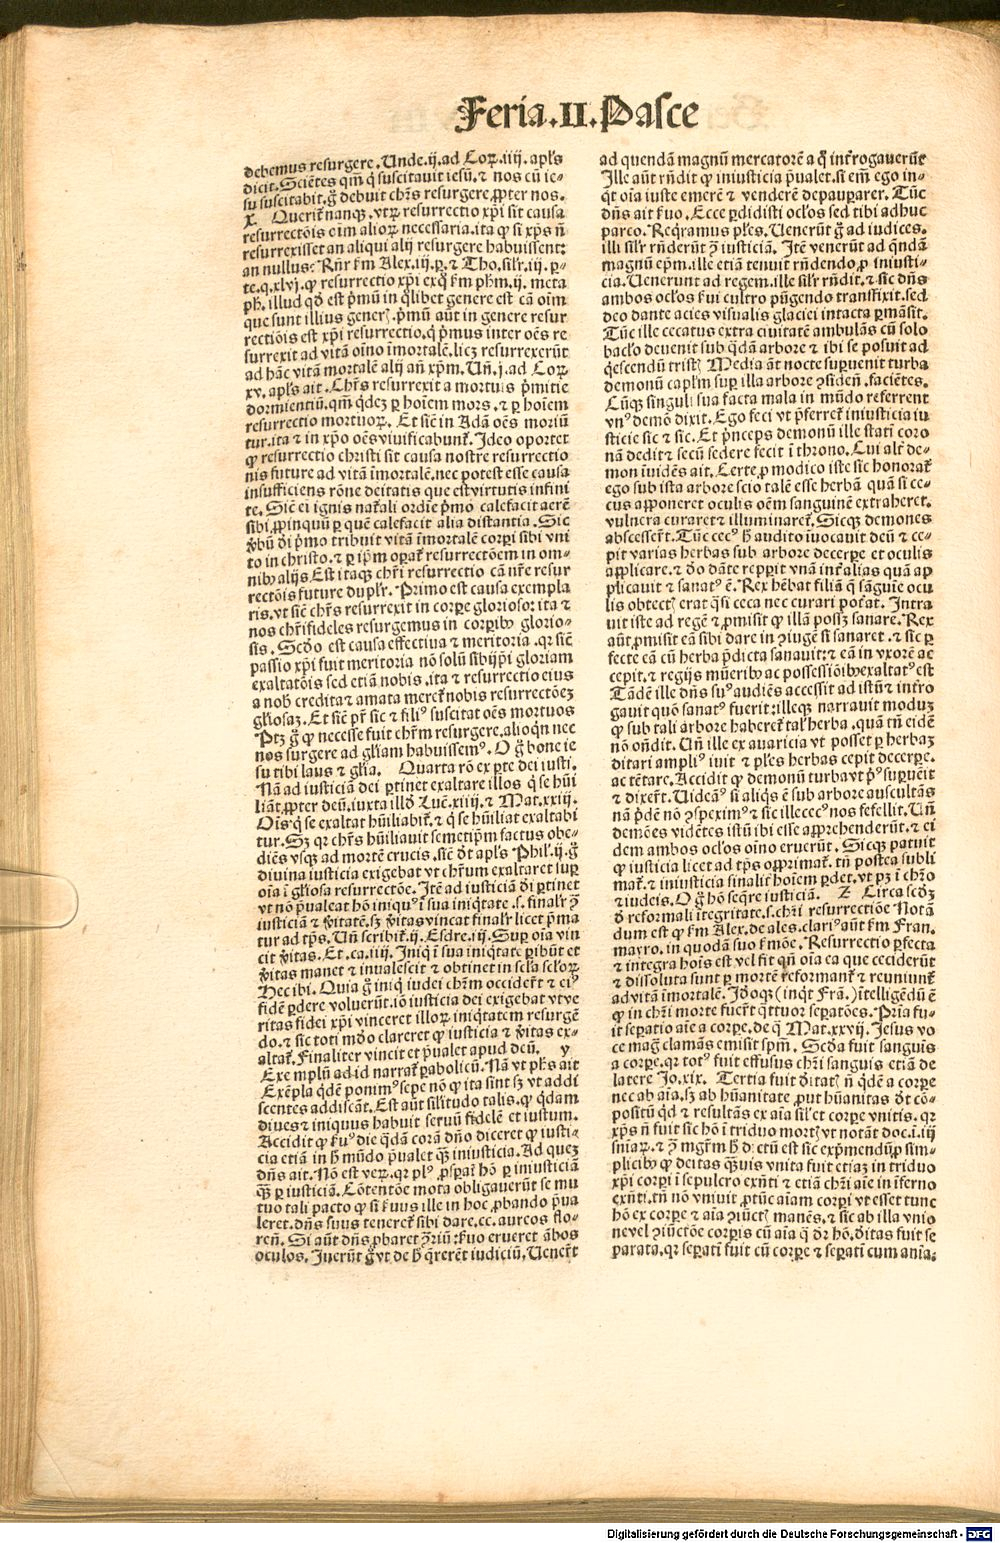 Feria.II.Pasce
debemus resurgere. Unde.ij.ad Coꝝ.iiij. apl's
dicit. Sciẽtes qm̃ q̇ suscitavit iesũ. ⁊ nos cũ ie-
su suscitabit. g̃ debuit chr̃s resurgere ꝓpter nos.
X. Querit᷑ nanqꝫ. vtꝝ resurrectio xp̃i sit causa
resurrectõis eim alioꝝ necessaria. ita ꝙ si xp̃s ñ
resurrexisset an aliqui alij resurgere habuissent:
an nullus: Rñr ẜm Alex.iij.ꝑ. ⁊ Tho. sil'r .iij. ꝑ-
te.q.xlvj. ꝙ resurrectio xp̃i exq̃ ẜm ph̃m.ij. meta
ph̃. illud qd̃ est p̃mũ in q̃libet genere est cã oĩm
que sunt illius gener̃. p̃mũ aũt in genere resur
rectiõis est xp̃i resurrectio. q̇ p̃mus inter oẽs re
surrexit ad vitã oĩno ĩmortalẽ. licꝫ resurrexerũt
ad hãc vitã mortalẽ alij añ xp̃m. Uñ.j.ad Coꝝ
xv. apl's ait. Chr̃s resurrexit a mortuis p̃mitie
dormientiũ. qm̃ qdẽꝫ ꝑ hoĩem mors. ⁊ ꝑ hoĩem
resurrectio mortuoꝝ. Et sic̃ in Adã oẽs moriũ
tur. ita ⁊ in xp̃o oẽs viuificabunt᷑. Ideo oportet
ꝙ resurrectio christi sit causa nostre resurrectio
nis future ad vitã ĩmortalẽ. nec potest esse causa
insufficiens rõne deitatis que est virtutis infini
te. Sic̃ ei ignis nat᷑ali ordĩe p̃mo calefacit aerẽ
sibi ꝓpinquũ ꝑ quẽ calefacit alia distantia. Sic
ṽbũ dĩ p̃mo tribuit vitã ĩmortalẽ corꝑi sibi vni
to in christo. ⁊ ꝑ ip̃m oꝑat᷑ resurrectõem in om-
nibꝰ alijs Est itaqꝫ chr̃i resurrectio cã nr̃e resur
rectõis future dupl'r. Primo est causa exempla
ris. vt sic̃ chr̃s resurrexit in corꝑe glorioso: ita ⁊
nos chr̃ifideles resurgemus in corꝑibꝰ glorio-
sis. Scd̃o est causa effectiua ⁊ meritoria. qr sic̃
passio xp̃i fuit meritoria nõ solũ sibijp̃i gloriam
exaltatõis sed etiam nobis. ita ⁊ resurrectio eius
a nob̃ credita ⁊ amata meret᷑ nobis resurrectõeꝫ
gl'iosaꝫ. Et sic̃ pr̃ sic ⁊ filiꝰ suscitat oẽs mortuos
Ptꝫ g̃ ꝙ necesse fuit chr̃m resurgere. alioqn nec
nos surgere ad gl'iam habuissemꝰ. O g̃ bone ie
su tibi laus ⁊ gl'ia. Quarta rõ ex ꝑte dei iusti.
Nã ad iusticiã dei ꝑtinet exaltare illos q̇ se hũi
liãt. ꝓpter deũ. iuxta illd̃ Luc̃.xiiij. ⁊ Mat.xxiij.
Oĩs q̇ se exaltat hũiliabit᷑. ⁊ q̇ se hũiliat exaltabi
tur. Sꝫ qr chr̃s hũiliauit semetip̃m factus obe-
diẽs vsqꝫ ad mortẽ crucis. sic̃ dĩt apl's Phil'.ij. g̃
diuina iusticia exigebat vt chr̃um exaltaret suꝑ
oĩa ĩ gl'iosa resurrectõe. Itẽ ad iusticiã dĩ ꝑtinet
vt nõ p̃ualeat hõ iniquꝰ ĩ sua iniq̇tate .s. final'r ꝯ̃
iusticiã ⁊ ṽitatẽ. sꝫ ṽitas vincat final'r licet p̃ma
tur ad tp̃s. Uñ scribit᷑.ij. Esdre.iij. Suꝑ oĩa vin
cit ṽitas. Et.ca.iiij. Iniq̇ ĩ sua iniq̇tate ꝑibũt et
ṽitas manet ⁊ inualescit ⁊ obtinet in scl'a scl'oꝝ
Hec ibi. Quia g̃ iniq̇ iudei chr̃m occidert᷑ ⁊ eiꝰ
fidẽ ꝑdere voluerũt. iõ iusticia dei exigebat vt ve
ritas fidei xp̃i vinceret illoꝝ iniq̇tatem resurgẽ
do. ⁊ sic toti mũdo clareret ꝙ iusticia ⁊ ṽitas ex-
altat᷑. Finaliter vincit et p̃ualet apud deũ. y
Exemplũ ad id narrat᷑ ꝑabolicũ. Nã vt phs̃ ait
Exẽpla qdẽ ponimꝰ sepe nõ ꝙ ita sint sꝫ vt addi
scentes addiscãt. Est aũt sil'itudo talis. ꝙ qdam
diues ⁊ iniquus habuit seruũ fidelẽ et iustum.
Accidit ꝙ ẜuꝰ die q̇dã corã dño diceret ꝙ iusti-
cia etiã in h̃ mũdo p̃ualet qꝫ iniusticia. Ad quez
dñs ait. Nõ est veꝝ. qr plꝰ ꝓsꝑat᷑ hõ ꝑ iniusticiã
qꝫ ꝑ iusticiã. Cõtentõe mota obligauerũt se mu
tuo tali pacto ꝙ si ẜuus ille in hoc ꝓbando p̃ua
leret. dñs suus teneret᷑ sibi dare.cc. aureos flo-
reñ. Si aũt dñs ꝓbaret ꝯ̃riũ: ẜuo erueret ãbos
oculos. Juerũt g̃ vt de h̃ q̃rerẽt iudiciũ. Uenert᷑
ad quendã magnũ mercatorẽ a q̊ int᷑rogauerũt
Ille aũt rñdit ꝙ iniusticia p̃ualet. si em̃ ego in-
qt oĩa iuste emerẽ ⁊ venderẽ depauꝑarer. Tũc
dñs ait ẜuo. Ecce ꝑdidisti ocl'os sed tibi adhuc
parco. Reqramus pl'es. Uenerũt g̃ ad iudices.
illi sil'r rñderũt ꝯ̃ iusticiã. Itẽ venerũt ad qndã
magnũ ep̃m. ille etiã tenuit rñdendo ꝓ iniusti-
cia. Uenerunt ad regem. ille sil'r rñdit. ⁊ sic dñs
ambos ocl'os ẜui cultro pũgendo transfixit. sed
deo dante acies visualis glaciei intacta ꝑmãsit.
Tũc ille cecatus extra ciuitatẽ ambulãs cũ solo
bacl'o deuenit sub qdã arbore ⁊ ibi se posuit ad
q̇escendũ trist̃ Media aũt nocte suꝑuenit turba
demonũ capl'm suꝑ illa arbore ꝯsidẽñ. faciẽtes.
Cũqꝫ singuli sua facta mala in mũdo referrent
vnꝰ demõ dixit. Ego feci vt p̃ferret᷑ iniusticia iu
sticie sic ⁊ sic. Et p̃nceps demonũ ille statĩ coro
nã dedit ⁊ secũ sedere fecit ĩ throno. Cui alt᷑ de-
mon ĩuidẽs ait. Certe ꝓ modico iste sic honorat᷑
ego sub ista arbore scio talẽ esse herbã quã si ce-
cus apponeret oculis oẽm sanguinẽ extraheret.
vulnera curaret ⁊ illuminaret᷑. Sicqꝫ demones
abscesserũt. Tũc cecꝰ h̃ audito ĩuocauit deũ ⁊ ce-
pit varias herbas sub arbore decerꝑe et oculis
applicare. ⁊ dõ dãte reꝑit vnã int᷑ alias quã ap
plicauit ⁊ sanatꝰ ẽ. Rex hẽbat filiã q̃ sãguĩe ocu
lis obtect̃ erat q̃si ceca nec curari pot᷑at. Intra
uit iste ad regẽ ⁊ ꝓmisit ꝙ illã possꝫ sanare. Rex
aũt ꝓmisit eã sibi dare in ꝯiugẽ si sanaret. ⁊ sic ꝑ
fecte eã cũ herba p̃dicta sanauit ⁊ eã in vxorẽ ac
cepit. ⁊ regijs mũeribꝰ ac possessiõibꝰ exaltatꝰ est
Tãdẽ ille dñs suꝰ audiẽs accessit ad istũ ⁊ int᷑ro
gauit quõ sanatꝰ fuerit: illeqꝫ narrauit moduꝫ
ꝙ sub tali arbore haberet᷑ tal' herba. quã tñ eidẽ
nõ oñdit. Uñ ille ex auaricia vt posset ꝑ herbaꝫ
ditari ampliꝰ iuit ⁊ pl'es herbas cepit decerꝑe.
ac tẽtare. Accidit ꝙ demonũ turba vt pꝰ suꝑuẽit
⁊ dixert᷑. Uideãꝰ si aliq̇s ẽ sub arbore auscultãs
nã p̃dẽ nõ ꝯsꝑeximꝰ ⁊ sic ille cecꝰ nos fefellit. Uñ
demões vidẽtes istũ ibi esse apꝓrehenderũt. ⁊ ei
dem ambos ocl'os oĩno eruerũt. Sicqꝫ patuit
ꝙ iusticia licet ad tp̃s opprimat᷑. tñ postea subli
mat᷑. ⁊ iniusticia finalit᷑ hoĩem ꝑdet. vt pꝫ ĩ chr̃o
⁊ iudeis. O g̃ hõ seq̃re iusticiam. Z Circa scd̃ꝫ
d̃ reformali ĩtegritate. s. chr̃i resurrectiõe Notã
dum est ꝙ ẜm Alex. de ales. clariꝰ aũt ẜm Fran.
mayro. in quodã suo ẜmõe. Resurrectio ꝑfecta
⁊ integra hoĩs est vel fit qñ oĩa ea que ceciderũt
⁊ dissoluta sunt ꝑ mortẽ reformant᷑ ⁊ reuniunt᷑
ad vitã ĩmortalẽ. Id̃oqꝫ (inqt Frã.) ĩtelligẽdũ ẽ
ꝙ in chr̃i morte fuert᷑ q̃ttuor seꝑatões. Pria fu-
it seꝑatio aĩe a corꝑe. de q̃ Mat.xxvij. Jesus vo
ce mag̃ clamãs emisit spm̃. Scd̃a fuit sanguis
a corꝑe. qr totꝰ fuit effusus chr̃i sanguis etiã de
latere Jo.xix. Tertia fuit ḋitatꝭ ñ qdẽ a corꝑe
nec ab aĩa. sꝫ ab hũanitate ꝓut hũanitas dĩt cõ-
positũ qd̃ ⁊ resultãs ex aĩa sil' et corꝑe vnitis. qr
xp̃s ñ fuit sic hõ ĩ triduo mort̃ vt notãt doc. ĩ.iij
sniaꝝ. ⁊ ꝯ̃ mgr̃m h̃ dictũ est sic exp̃mendũ ꝓ sim-
plicibꝰ ꝙ deitas qꝫuis vnita fuit etiaꝫ in triduo
xp̃i corꝑi ĩ sepulcro exñti ⁊ etiã chr̃i aĩe in ĩferno
exñti. tñ nõ vniuit ꝓtũc aĩam corꝑi vt esset tunc
hõ ex corꝑe ⁊ aĩa ꝯiũct̃ manẽs. ⁊ sic ab illa vnio
ne vel ꝯiũctõe corꝑis cũ aĩa q̃ dr̃ hõ. ḋitas fuit se
parata. qr seꝑati fuit cũ corꝑe ⁊ seꝑati cum anĩa.
Digitalisierung gefördert durch die Deutsche Forschungsgemeinschaft - DFG